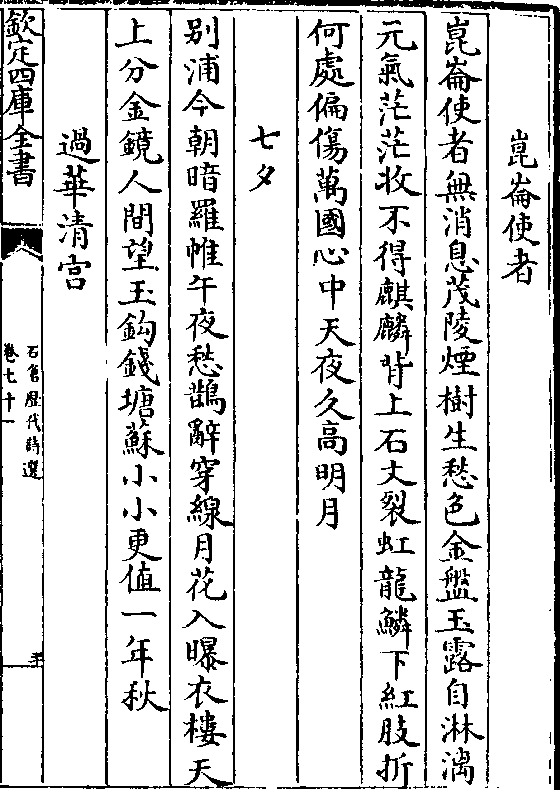 崑崙使者
崑崙使者無消息茂陵煙樹生愁色金盤玉露自淋漓
元氣茫茫收不得麒麟背上石文裂虬龍鱗下紅肢折
何處偏傷萬國心中天夜久高明月
七夕
别浦今朝暗羅帷午夜愁鵲辭穿線月花入曝衣樓天
上分金鏡人間望玉鈎錢塘蘇小小更值一年秋
過華清宫
欽定四庫全書
石倉歴代詩選
卷七十一